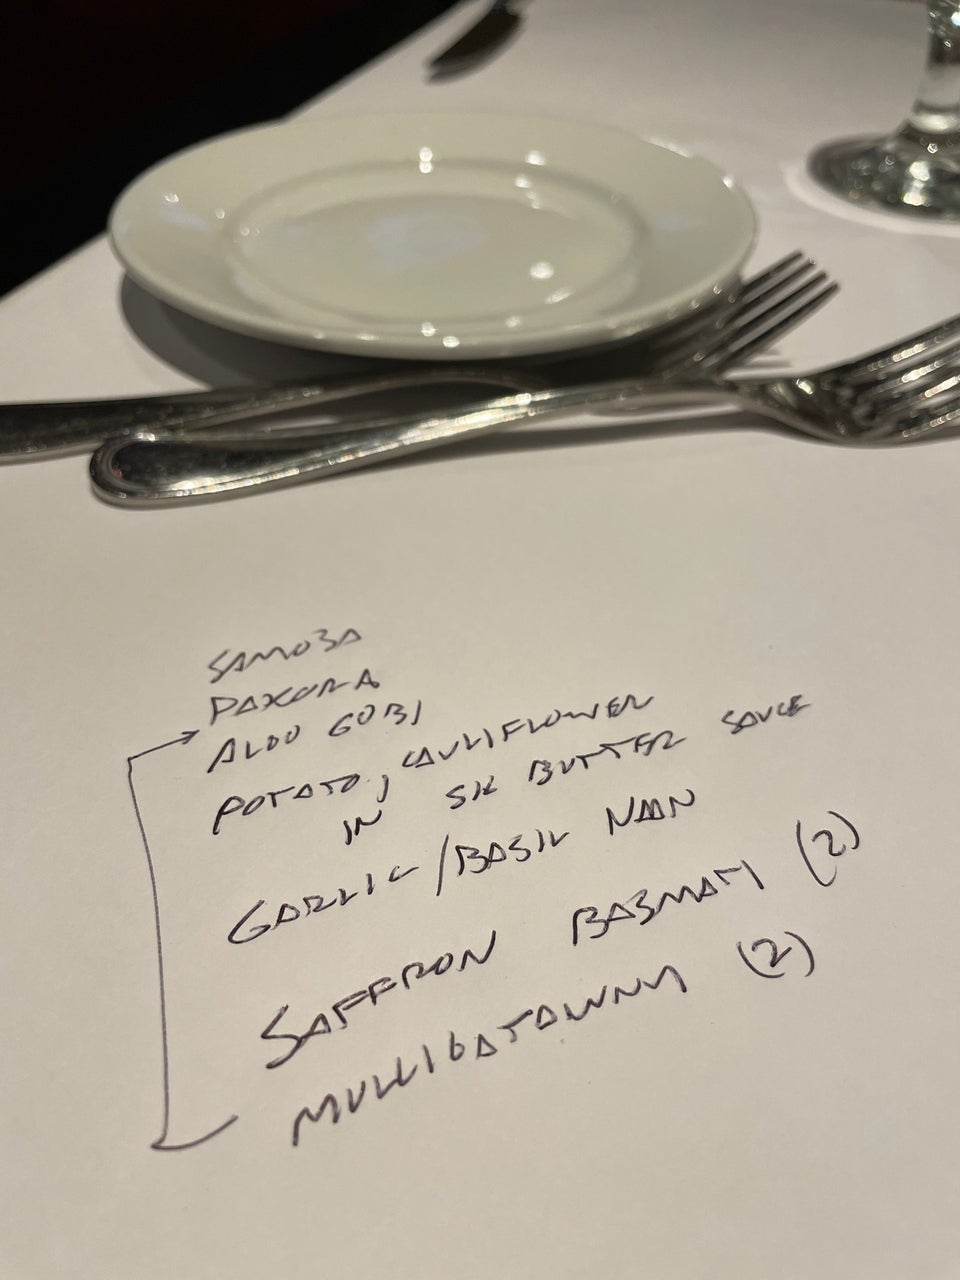 SAMOSA
PAKORA
ALOO GOBI
POTATO, CAULIFLOWER
IN SK BUTTER SAUCE
GARLIC/BASIL NAAN
SAFFRON BASMATI (2)
MULLIGATAWNY (2)